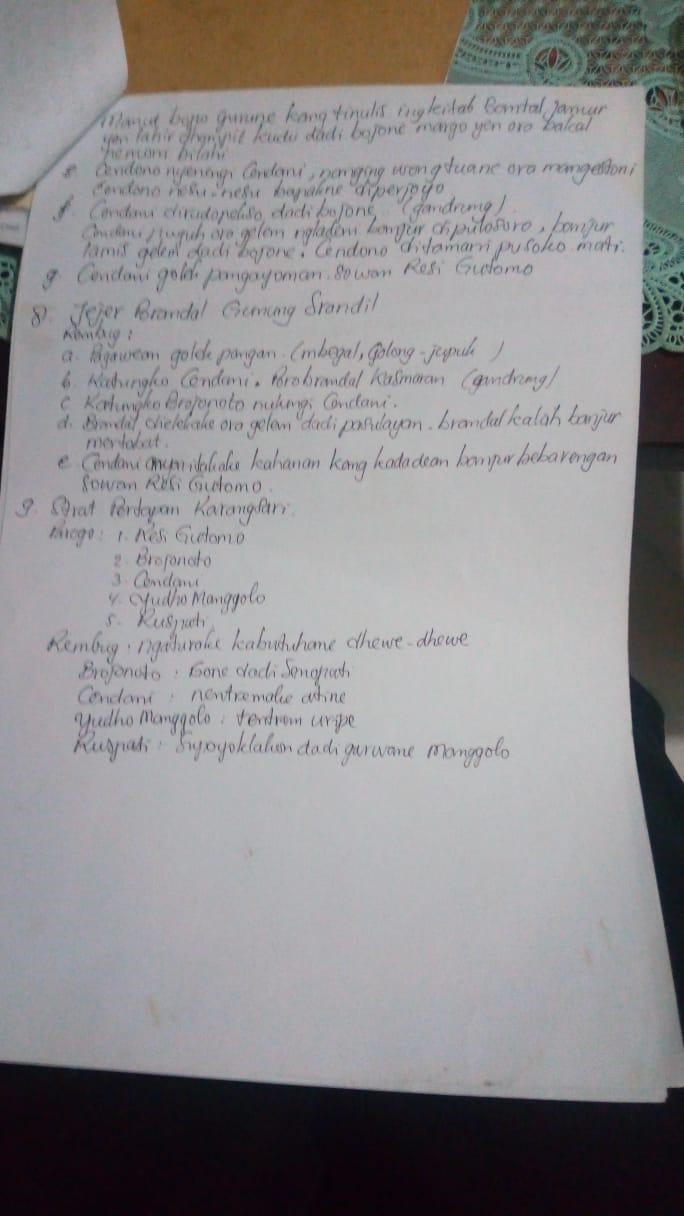 Manut bopo gurune kang tinulis ing kitab Bomtal Jamur
yen lahir dhampit kudu dadi bojone margo yen ora bakal
nemoni bilahi
e. Cendono nyenengi Cendani, nanging wong tuane ora mangestoni
Cendono nesu-nesu bapakne diperjoyo
f. Cendani dirudopekso dadi bojone (gandrung)
Cendani puguh ora gelem ngladeni banjur dipulosoro, banjur
lamis gelem dadi bojone. Cendono ditamani pusoko mati.
g. Cendani golek pangayoman. Sowan Resi Gutomo
8. Jejer Brandal Gunung Srandil
Rembug:
a. Pagawean golek pangan. (mbegal, Golong-jupuk)
b. Katungko Cendani. Poro brandal kasmaran (gandrung)
c Katungko Brojonoto nulungi Cendani.
d. Brandal dielekake ora gelem dadi pasulayan. brandal kalah banjur
mertobat.
e Cendani kahanan kang kadadean banjur bebarengan
Sowan Resi Gutomo.
9. Perdapan Karangsari.
Parogo: 1. Resi Gutomo
2. Brojonoto
3. Cendani
4. Yudho Manggolo
5. Ruspati
Rembug: ngaturake kabutuhane dhewe-dhewe
Brojonoto: Gone dadi Senopati
Cendani: nentremake atine
Yudho Manggolo: tentrem uripe
Ruspati: dadi garwane Manggolo